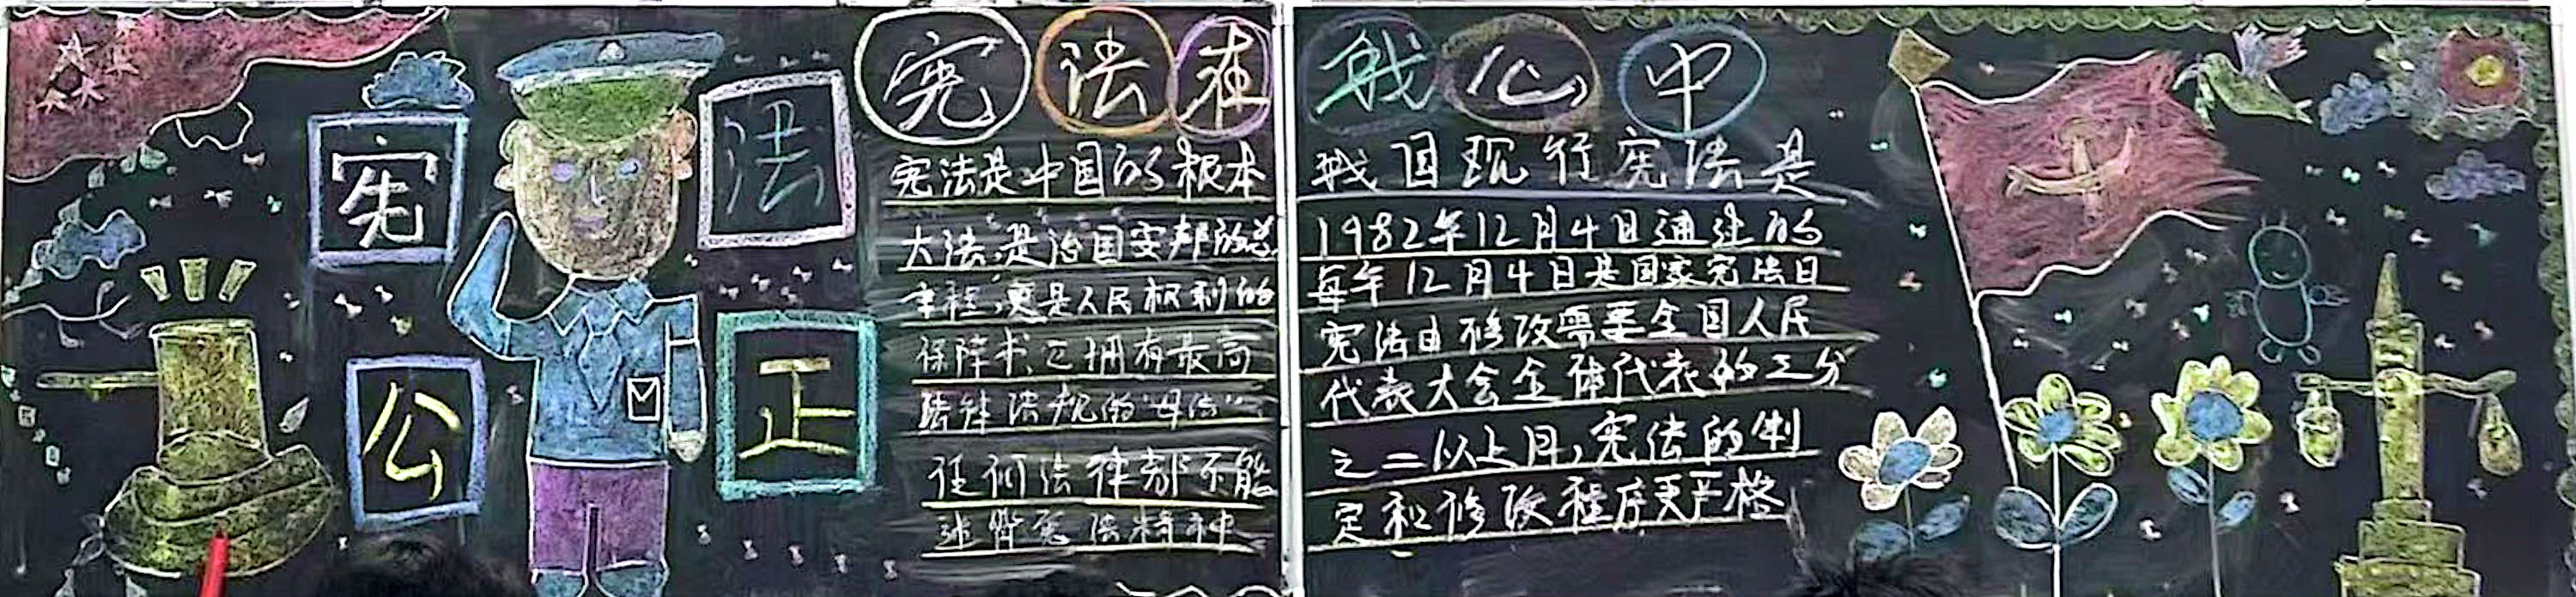 宪法
公正
宪法在我心中
宪法是中国的根本
大法,是治国安邦的总
章程,更是人民权利的
保障书,它拥有最高
法律法规的“母法”.
任何法律都不能
违背宪法精神
我国现行宪法是
1982年12月4日通过的
每年12月4日是国家宪法日
宪法由修改需要全国人民
代表大会全体代表的三分
之二以上同,宪法的制
定和修改程序更严格